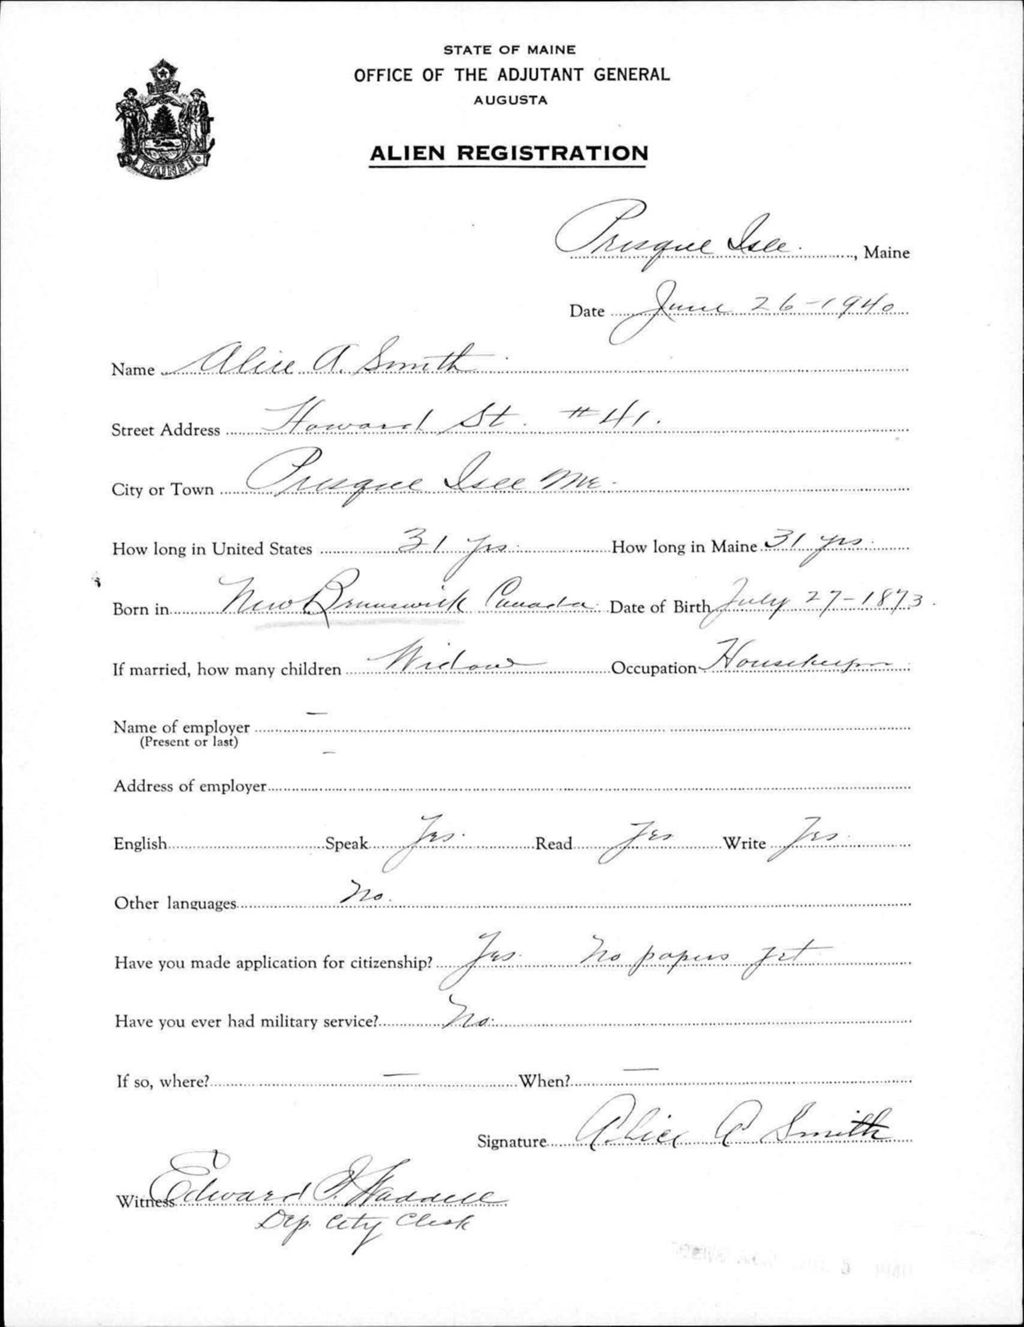 STATE OF MAINE
OFFICE OF THE ADJUTANT GENERAL
AUGUSTA
ALIEN REGISTRATION
MAINE
Presque Isle, Maine
Date June 26-1940
Name Alice A. Smith
Street Address Howard St. #41.
City or Town Presque Isle Me.
How long in United States 31 yrs. How long in Maine 31 yrs.
Born in New Brunswick Canada. Date of Birth July 27-1873.
If married, how many children Widow Occupation Housekeeper
Name of employer —
(Present or last)
Address of employer —
English Speak Yes. Read Yes Write Yes.
Other languages No.
Have you made application for citizenship? Yes. No papers yet
Have you ever had military service? No.
If so, where? — When? —
Signature Alice A Smith
Witness Edward J. Waddell
Dep. City Clerk